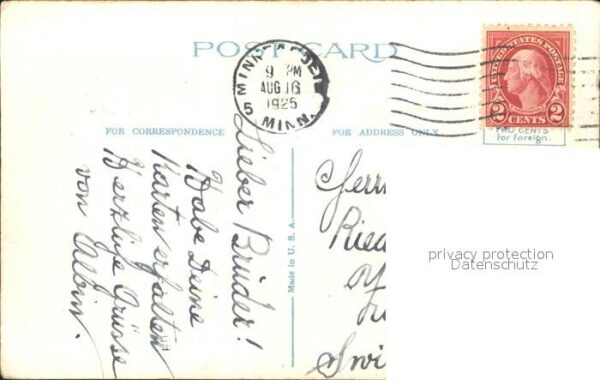 POST CARD
MINNEAPOLIS
9 PM
AUG 16
1925
5 MINN.
UNITED STATES POSTAGE
2 CENTS 2
TWO CENTS
for foreign.
FOR CORRESPONDENCE
FOR ADDRESS ONLY
Lieber Bruder!
Habe Deine
Karten erhalten
Herzliche Grüsse
von Albin.
Made in U. S. A.
Herrn
Ried
Swi
privacy protection
Datenschutz